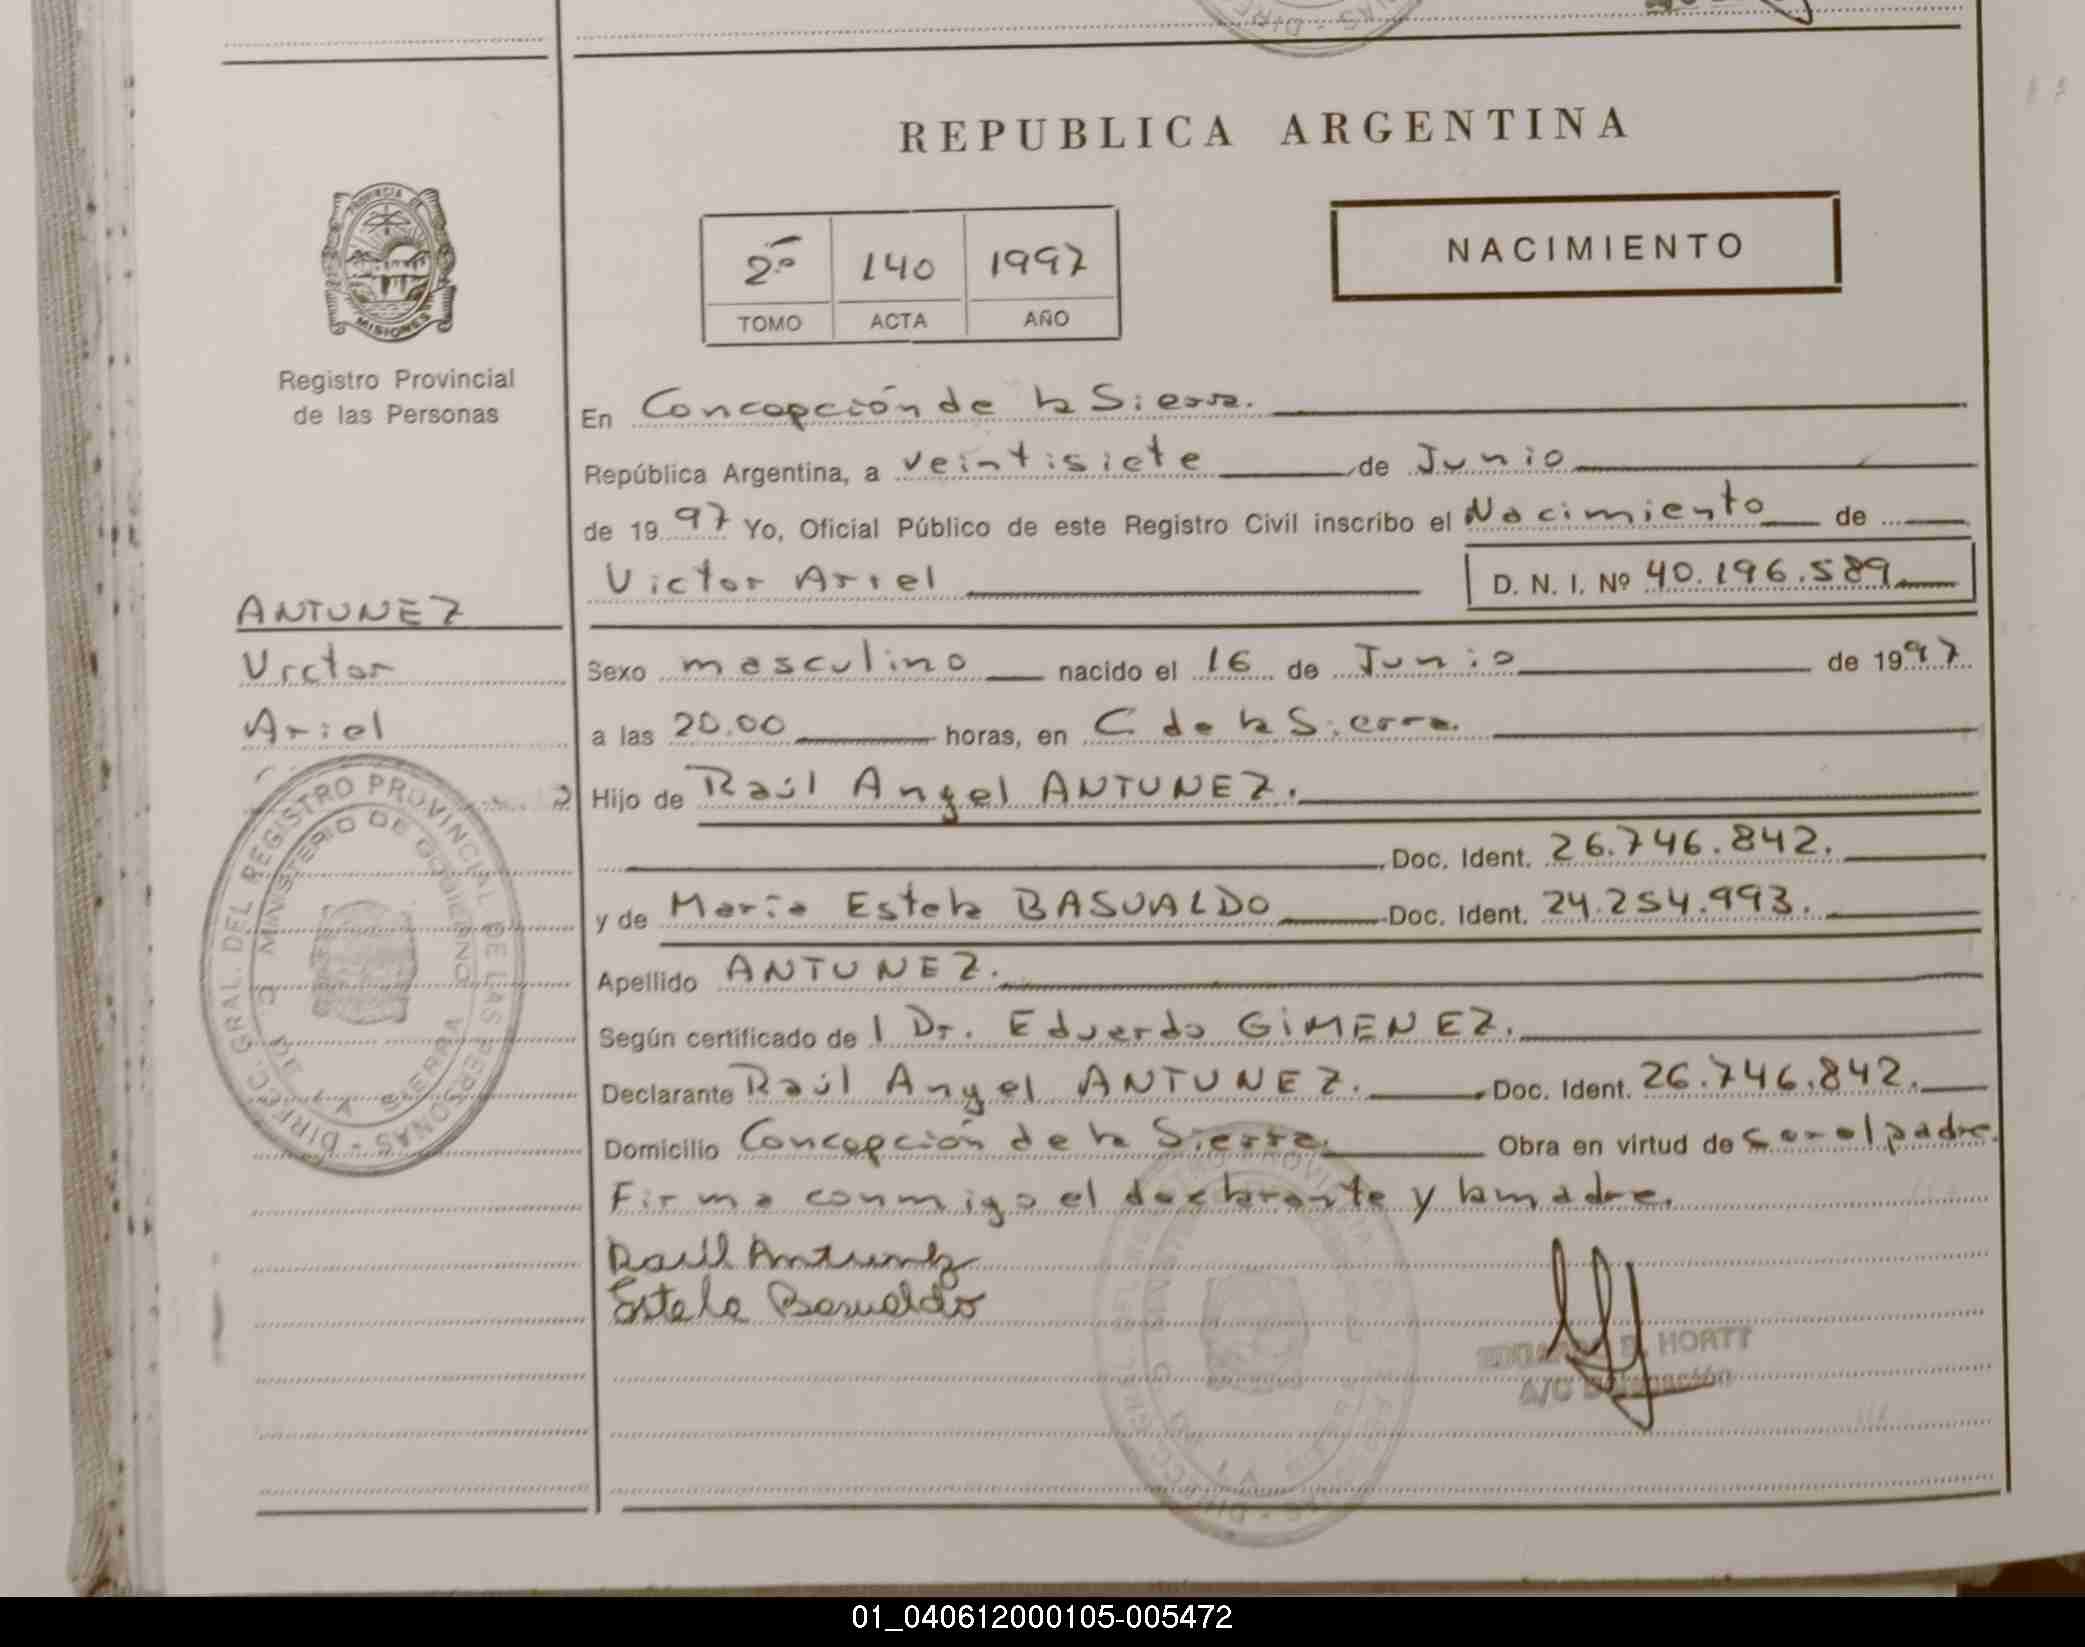 REPUBLICA ARGENTINA
PROVINCIA DE
MISIONES
Registro Provincial
de las Personas
2º
140
1997
TOMO
ACTA
AÑO
NACIMIENTO
En Concepción de la Sierra.
República Argentina, a veintisiete de Junio
de 1997 Yo, Oficial Público de este Registro Civil inscribo el Nacimiento de
Victor Ariel D. N. I. Nº 40.196.589
ANTUNEZ
Victor
Ariel
Sexo masculino nacido el 16 de Junio de 1997
a las 20.00 horas, en C de la Sierra.
Hijo de Raúl Angel ANTUNEZ.
Doc. Ident. 26.746.842.
y de María Estela BASUALDO Doc. Ident. 24.254.993.
Apellido ANTUNEZ.
Según certificado de l Dr. Eduardo GIMENEZ.
Declarante Raúl Angel ANTUNEZ. Doc. Ident. 26.746.842.
Domicilio Concepción de la Sierra. Obra en virtud de ser el padre.
Firma conmigo el declarante y la madre.
Raúl Antunez
Estela Basualdo
HORTT
A/C Delegación
DIREC. GRAL. DEL REGISTRO PROVINCIAL DE LAS PERSONAS
MINISTERIO DE GOBIERNO
C. DE LA SIERRA
01_040612000105-005472